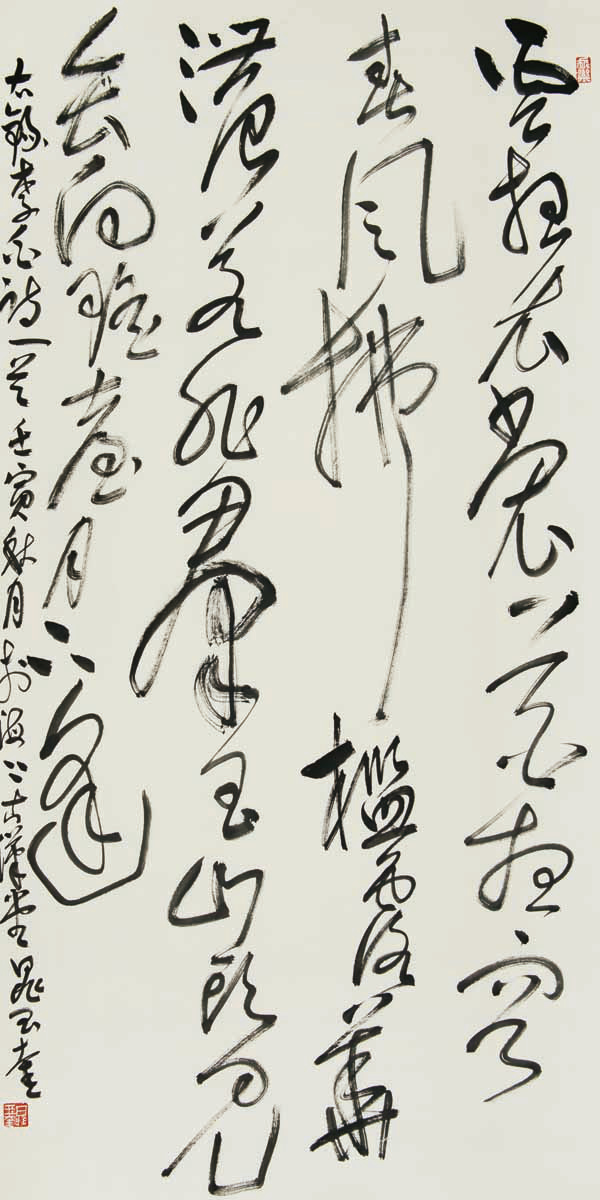 雲想衣裳花想容
春風拂檻露華
濃若非群玉山頭見
會向瑤臺月下逢
右錄李白詩一首壬寅秋月於 晁玉奎